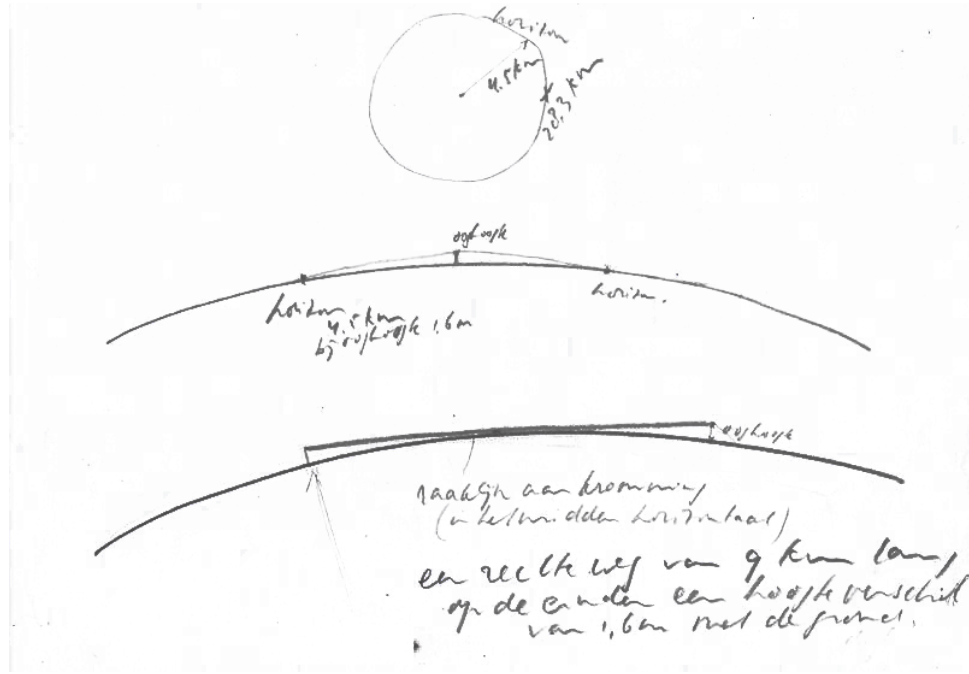 horizon
4.5 km
28.3 km
ooghoogte
horizon
4.5 km
bij ooghoogte 1,6m
horizon.
ooghoogte
raaklijn aan kromming
(in het midden horizontaal)
een rechte weg van 9 km lang
op de einden een hoogteverschil
van 1,6m met de grond.